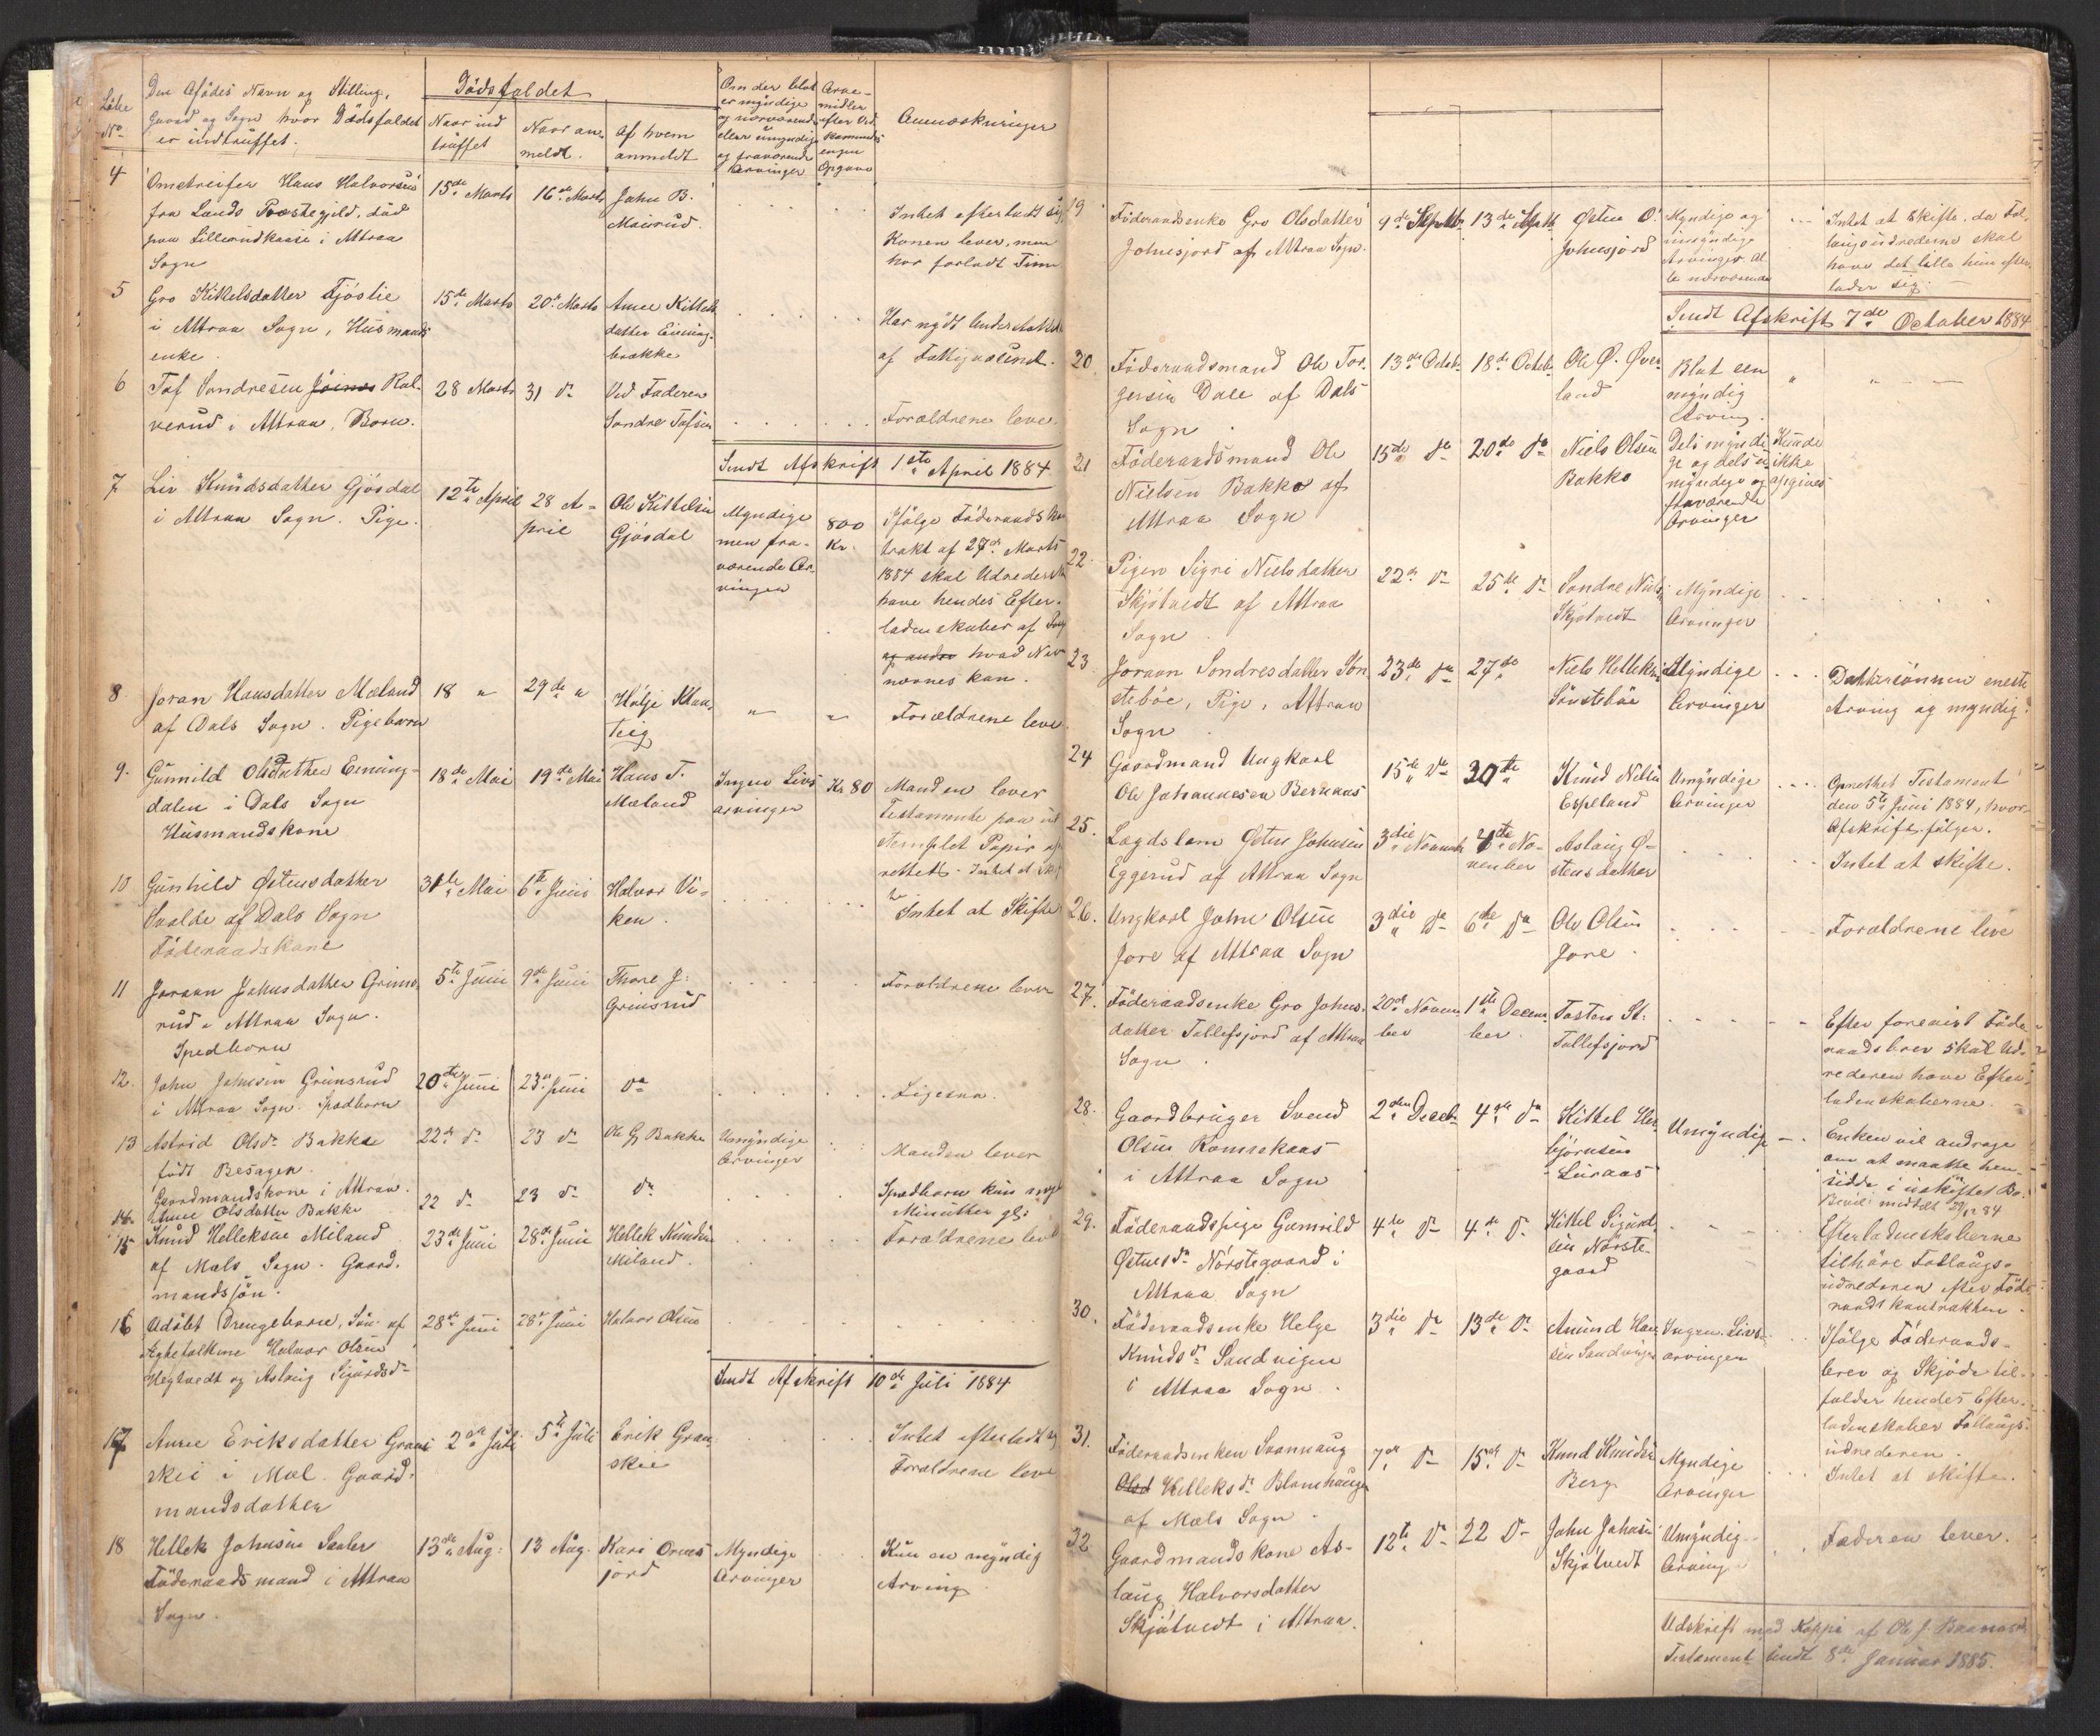 Löbe
No
Den Afdødes Navn og Stilling,
Gaard og Sogn hvor Dødsfaldet
er indtruffet.
Dødsfaldet
Naar ind
truffet
Naar an-
meldt.
af hvem
anmeldt
Om der blot
er myndige
og nærværende
eller umyndige
og fraværende
Arvinger
Arve-
midler
efter Ved-
kommendes
egen
Opgave
Anmærkninger
4
Omstreifer Hans Halvorsen
fra Lands Præstegjeld, død
paa Lillerudkaase i Attraa
Sogn
15de Marts
16de Marts
John B.
Maarud.
Intet efterladt sig
Konen lever, men
har forladt Tinn
5
Gro Kittelsdatter Gjøslie
i Attraa Sogn, Husmands
enke.
15de Marts
20de Marts
Anne Kittels
datter Einung-
brække
Har nydt Understøttelse
af Fattigvæsenet.
6
Tof Sondresen Rol-
verud i Attraa, Barn.
28 Marts
31 do
Ved Faderen
Sondre Tofsen
Forældrene leve.
Sendt Afskrift 1ste April 1884
7
Liv Knudsdatter Gjøsdal
i Attraa Sogn. Pige.
12te April
28 A-
pril
Ole Kittelsen
Gjøsdal
Myndige
men fra-
værende Ar-
vinger
800
Kr.
Ifølge Føderaads Kon
trakt af 27de Marts
1884 skal Udrederen
have hendes Efter-
ladenskaber af
og andre hvad Nav
nævnes kan.
8
Joran Hansdatter Mæland
af Dals Sogn. Pigebarn
18 "
29de "
Hølje
tieg
"
"
Forældrene leve
9.
Gunnild Olsdatter Einung-
dalen i Dals Sogn
Husmandskone
18de Mai
19de Mai
Hans T.
Mæland
Ingen Livs
arvinger
Kr 80
Manden lever
Testamente paa
stemplet Papir op
rettet. Intet at Skif
te
10
Gunhild Østensdatter
Svalde af Dals Sogn
Føderaadskone
31te Mai
6te Juni
Halvor Vi-
ken.
Intet at Skifte
11
Joraan Johnsdatter Grims
rud i Attraa Sogn.
Spedbarn
5te Juni
9de Juni
Thore J:
Grimsrud
Forældrene lever
12.
John Johnsen Grimsrud
i Attraa Sogn. Spædbarn
20de Juni
23de Juni
do
Ligesaa.
13
Astrid Olsdr Bakka
født Besagen.
Gaardmandskone i Attraa.
22de do
23 do
Ole G Bakka
Umyndige
Arvinger
Manden lever
14
Anne Olsdatter Bakke
22 do
23 do
do
Spædbarn kun nogle
Minutter gl:
15
Knud Helleksen Miland
af Mæls Sogn. Gaard-
mandssøn.
23de Juni
28de Juni
Hellek Knudsen
Miland.
Forældrene leve
16
Udøbt Drengebarn, Søn af
Ægtefolkene Halvor Olsen
Hegtvedt og Aslaug Sigurdsdr
28de Juni
28de Juni
Halvor Olsen
Sendt Afskrift 10de Juli 1884
17
Anne Eriksdatter Gran
skei i Mæl. Gaard-
mandsdatter
2den Juli
5te Juli
Erik Gran
skei
Intet efterladt og
Forældrene leve
18
Hellek Johnsen Saaler
Føderaadsmand i Attraa
Sogn.
13de Aug:
13 Aug.
Kari Ormes
jord
Myndige
Arvinger
Kun en myndig
Arving.
19
Føderaadsenke Gro Olsdatter
Johnsjord af Attraa Sogn.
9de Septbr
13de Septb
Østen O.
Johnsjord
Myndige og
umyndige
Arvinger al-
le nærværende
Intet at Skifte, da Fol-
laugsudrederne skal
have det lille hun efter-
lader sig.
Sendt Afskrift 7de October 1884
20.
Føderaadsmand Ole Tor-
gersen Dale af Dals
Sogn.
13de Octob.
18de Octob.
Ole Ø. Øver-
land
Blot een
myndig
Arving.
"
"
21
Føderaadsmand Ole
Nielsen Bakko af
Attraa Sogn
15de do
20de do
Niels Olsen
Bakko
Dels myndi-
ge og dels u-
myndige og
fraværende
Arvinger
Kunde
ikke
opgives
22.
Pigen Sigri Nielsdatter
Skjøtvedt af Attraa
Sogn.
22de do
25de do
Sondre Niels:
Skjøtvedt
Myndige
Arvinger
23
Joraan Sondresdatter Søn
stebøe, Pige, Attraa
Sogn.
23de do
27de
Niels Helleksen
Sønstebøe
Myndige
Arvinger
Dattersønnen eneste
Arving og myndig.
24
Gaardmand Ungkarl
Ole Johannesen Bernaas
15de do
30te
Knud Nilsen
Espeland
Umyndige
Arvinger
Oprettet Testament
den 5te Juni 1884, hvor-
Afskrift følger.
25.
Lægdslem Østen Johnsen
Eggerud af Attraa Sogn
3die Novemb
4de No-
vember
Aslaug Ø-
stensdatter
Intet at skifte.
26.
Ungkarl John Olsen
Jore af Attraa Sogn
3die do
6te do
Ole Olsen
Jore.
Forældrene leve
27.
Føderaadsenke Gro Johns-
datter Tollefsjord af Attraa
Sogn.
20de Novem
ber
1ste Decem-
ber
Tosten St:
Tollefsjord
Efter forevist Føde-
raadsbrev skal Ud-
rederen have Efter-
ladenskaberne.
28.
Gaardbruger Svend
Olsen Romsekaas
i Attraa Sogn
2den Decb.
4de do
Kittel Her-
bjørnsen
Luraas
Umyndige
Enken vil andrage
om at maatte hen-
sidde i uskiftet Bo.
Bevil: meddelt 29/12 84
29.
Føderaadspige Gunnild
Østensdr Nørstegaard i
Attraa Sogn
4de do
4de do
Kittel Sigurd-
sen Nørste-
gaard
Efterladenskaberne
tilhøre Follaugs-
udrederen efter Føde-
raadskontrakten.
30.
Føderaadsenke Helge
Knudsdr Sandvigen
i Attraa Sogn.
3die do
13de do
Amund Han
sen Sandvigen
Ingen Livs-
arvinger
Ifølge Føderaads-
brev og Skjøde til-
falder hendes Efter-
ladenskaber Follaugs-
udrederen.
31.
Føderaadsenken Svannaug
Olsd Helleksdr Blomhaugen
af Mæls Sogn.
7de do
15de do
Knud Knudsen
Berg
Myndige
Arvinger
Intet at skifte.
32
Gaardmandskone As-
laug Halvorsdatter
Skjøtvedt i Attraa.
12te do
22 do
John Johnsen
Skjøtvedt
Umyndig
Arving
Faderen lever.
Udskrift med Koppi af Ole J. Baanaas
Testament sendt 8de Januar 1885.